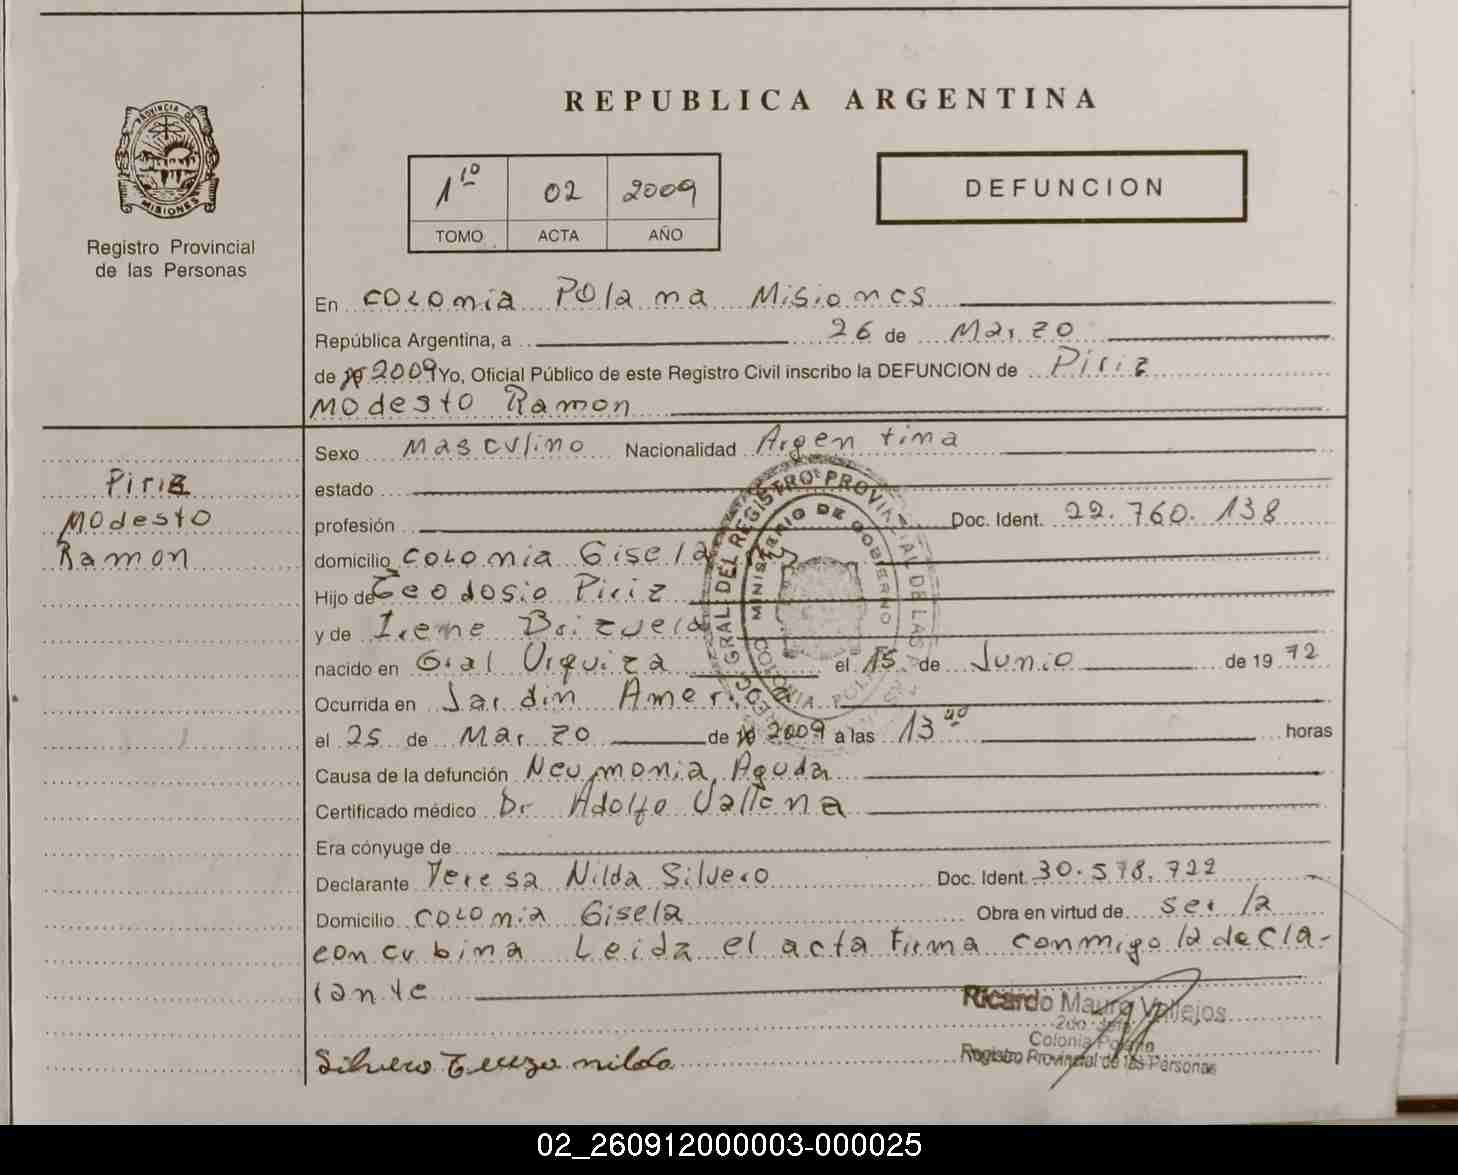 REPUBLICA ARGENTINA
PROVINCIA DE
MISIONES
Registro Provincial
de las Personas
1º 02 2009
TOMO ACTA AÑO
DEFUNCION
En COLOMIA POLANA MISIONES
República Argentina, a 26 de Marzo
de 2009 Yo, Oficial Público de este Registro Civil inscribo la DEFUNCION de Piriz
Modesto Ramon
Piriz
Modesto
Ramon
Sexo Masculino Nacionalidad Argentina
estado
profesión Doc. Ident. 22.760.138
domicilio COLOMIA Gisela
Hijo de Teodosio Piriz
y de Irene Brizuela
nacido en Gral Urquiza el 15 de Junio de 1972
Ocurrida en Jardin America
el 25 de Marzo de 2009 a las 13 horas
Causa de la defunción Neumonia Aguda
Certificado médico Dr Adolfo
Era cónyuge de
Declarante Teresa Nilda Silvero Doc. Ident. 30.578.722
Domicilio COLOMIA Gisela Obra en virtud de ser la
concubina Leida el acta firma conmigo la decla-
rante
Silvero Tereza nilda
Ricardo Mauro Vallejos
Colonia Polana
Registro Provincial de las Personas
DEL REGISTRO PROVINCIAL DE LAS
MINISTERIO DE GOBIERNO
02_260912000003-000025